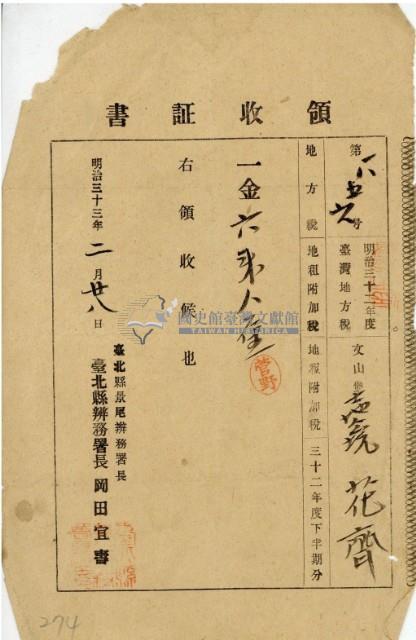 領收証書
第 號
明治三十二年度
臺灣地方稅
文山堡
花齊
地方稅
地租附加稅
地租附加稅
三十二年度下半期分
一金六
菅野
右領收候也
明治三十三年二月廿八日
臺北縣景尾辨務署長
臺北縣辨務署長 岡田宜書
國史館臺灣文獻館
TAIWAN HISTORICA
274